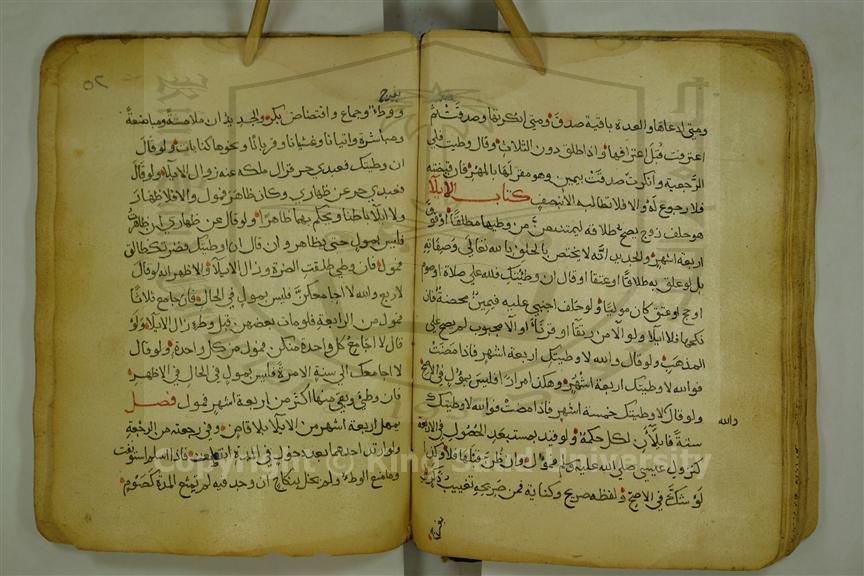 ومتى ادعاها والعدة باقية صدق ومتى انكرتها وصدقت ثم
اعترفت قبل اعترافها واذا طلق دون الثلاث وقال وطيت فلي
الرجعة وانكرت صدقت بيمين وهو مقر لها بالمهر فان قبضته
فلا رجوع له والا فلا تطالبه الا بنصف كتاب الايلا
هو حلف زوج يصح طلاقه ليمتنعن من وطيها مطلقا او فوق
اربعة اشهر والجديد انه لا يختص بالحلف بالله تعالى وصفاته
بل لو علق به طلاقا او عتقا او قال ان وطيتك فلله علي صلاة او صوم
او حج او عتق كان موليا ولو حلف اجنبي عليه فيمين محضة فان
نكحها فلا ايلا ولو آلا من رتقا او قرنا او آلا مجبوب لم يصح على
المذهب ولو قال والله لا وطيتك اربعة اشهر فاذا مضت
فوالله لا وطيتك اربعة اشهر وهكذا مرارا فليس بمول في الاصح
ولو قال لا وطيتك خمسة اشهر فاذا مضت فوالله لا وطيتك
والله
سنة فايلاآن لكل حكمه ولو قيد بمستبعد الحصول في الاربعة
كنزول عيسى صلى الله عليه وسلم فمول وان ظن قبلها فلا وكذا
لو شك في الاصح ولفظه صريح وكناية فمن صريحه تغييب ذكر
بفرج
ووطء وجماع وافتضاض بكر والجديد ان ملامسة ومباضعة
ومباشرة واتيانا وغشيانا وقربانا ونحوها كنايات ولو قال
ان وطيتك فعبدي حر فزال ملكه عنه زوال الايلا ولو قال
فعبدي حر عن ظهاري وكان ظاهر فمول والا فلا ظهار
ولا ايلا باطنا ويحكم بهما ظاهرا ولو قال عن ظهاري ان ظاهرت
فليس بمول حتى يظاهر وان قال ان وطيتك فضرتك طالق
فمول فان وطي طلقت الضرة وزال الايلا والاظهر انه لو قال
لاربع والله لا اجامعكن فليس بمول في الحال فان جامع ثلاثا
فمول من الرابعة فلو مات بعضهن قبل وطء زال الايلا ولو
قال لا اجامع كل واحدة منكن فمول من كل واحدة ولو قال
لا اجامعك الى سنة الا مرة فليس بمول في الحال في الاظهر
فان وطئ وبقي منها اكثر من اربعة اشهر فمول فصل
يمهل اربعة اشهر من الايلا بلا قاض وفي رجعته من الرجعة
ولو ارتد احدهما بعد دخول في المدة انقطعت فاذا اسلم استونفت
وما منع الوطء ولم يخل بنكاح ان وجد فيه لم يمنع المدة كصوم